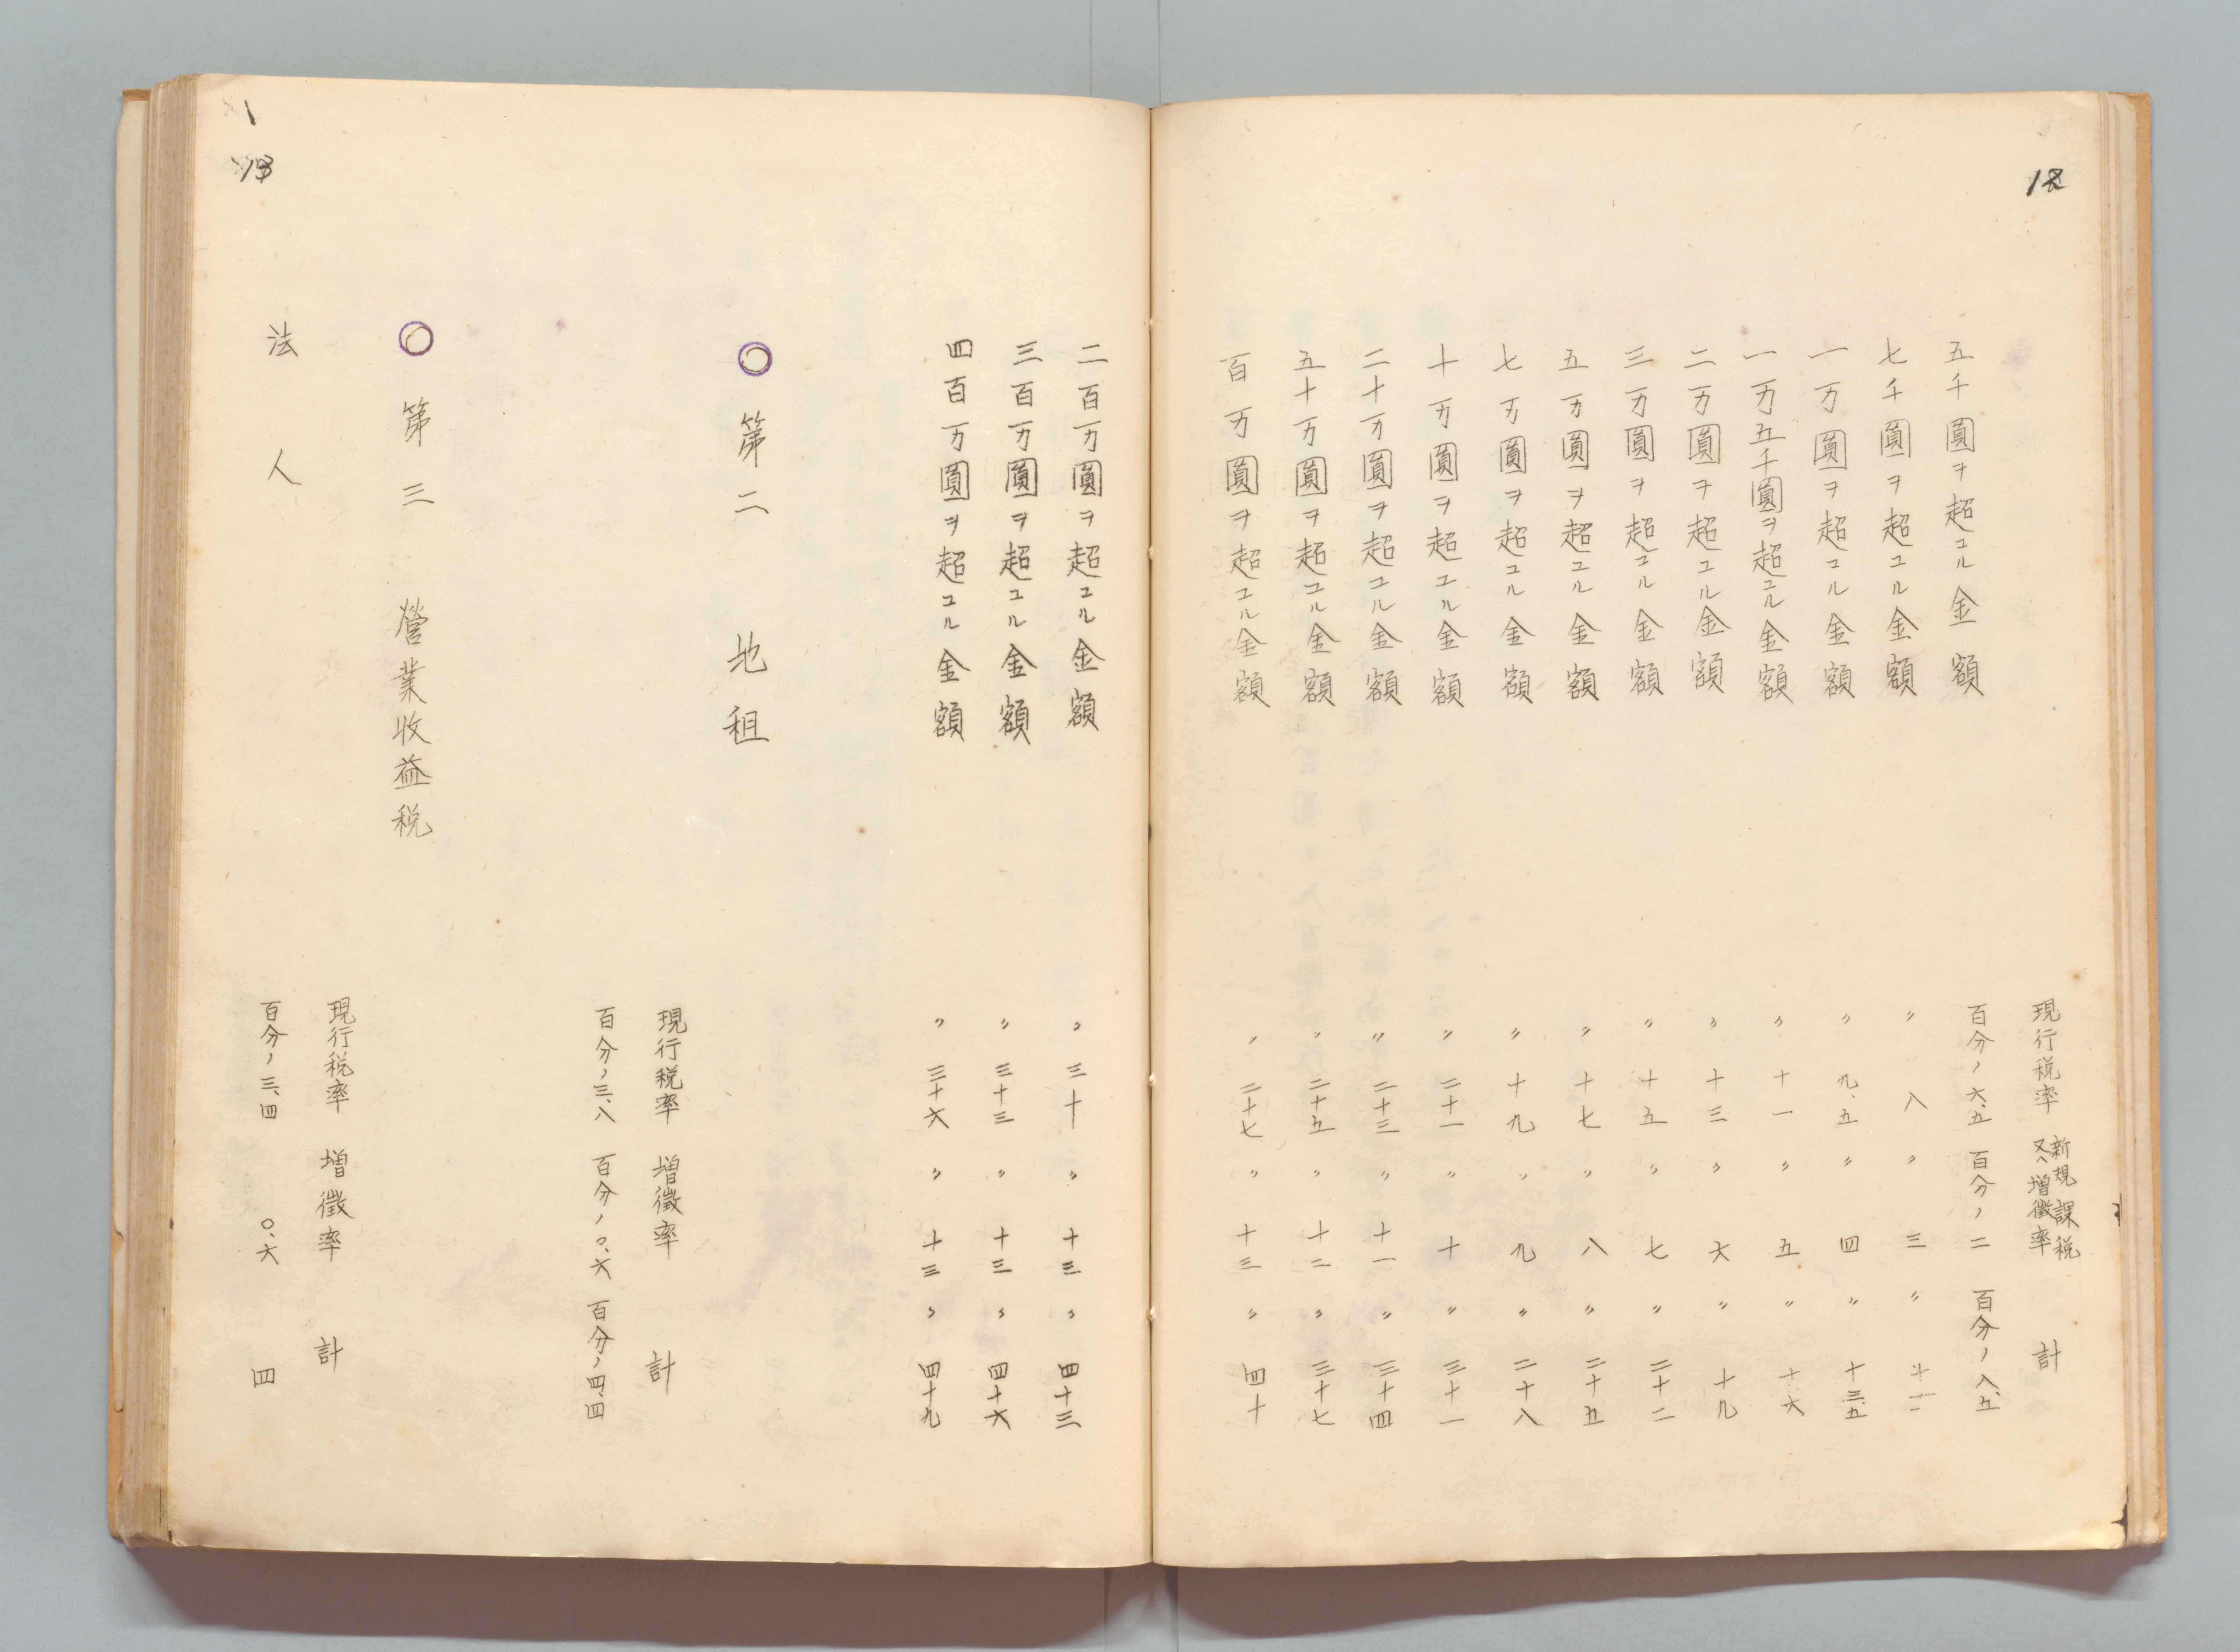 18
現行税率 新規課税又ハ増徴率 計
五千圓ヲ超ユル金額 百分ノ六、五 百分ノ二 百分ノ八、五
七千圓ヲ超ユル金額 〃 八 〃 三 〃 十一
一万圓ヲ超ユル金額 〃 九、五 〃 四 〃 十三、五
一万五千圓ヲ超ユル金額 〃 十一 〃 五 〃 十六
二万圓ヲ超ユル金額 〃 十三 〃 六 〃 十九
三万圓ヲ超ユル金額 〃 十五 〃 七 〃 二十二
五万圓ヲ超ユル金額 〃 十七 〃 八 〃 二十五
七万圓ヲ超ユル金額 〃 十九 〃 九 〃 二十八
十万圓ヲ超ユル金額 〃 二十一 〃 十 〃 三十一
二十万圓ヲ超ユル金額 〃 二十三 〃 十一 〃 三十四
五十万圓ヲ超ユル金額 〃 二十五 〃 十二 〃 三十七
百万圓ヲ超ユル金額 〃 二十七 〃 十三 〃 四十
二百万圓ヲ超ユル金額 〃 三十 〃 十三 〃 四十三
三百万圓ヲ超ユル金額 〃 三十三 〃 十三 〃 四十六
四百万圓ヲ超ユル金額 〃 三十六 〃 十三 〃 四十九
○第二 地租
現行税率 増徴率 計
百分ノ三、八 百分ノ〇、六 百分ノ四、四
○第三 營業收益税
現行税率 増徴率 計
法人 百分ノ三、四 〇、六 四